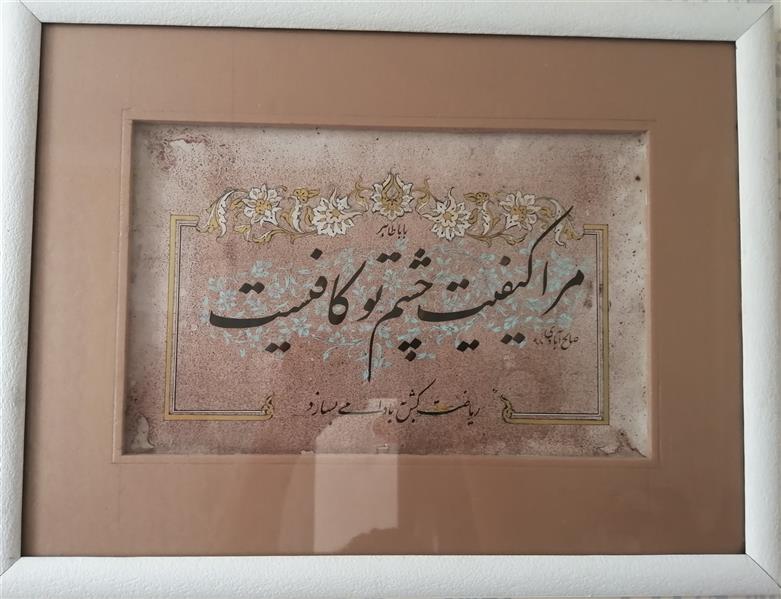 بابا طاهر
مرا کیفیت چشم تو کافیست
صالح آبادی
ریاضت کش ببادامی بسازد